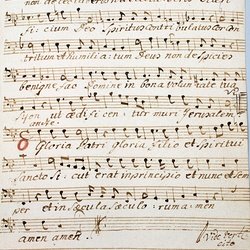 ficium Deo Spiritus contribulatus Cor con
tritum et humilia tum Deus non despicies
benigne fac Domine in bona voluntate tua
Syon ut ædificen tur muri Jerusalem
Gloria Patri gloria filio et Spiritui
sancto Si cut erat in principio et nunc et sem
per et in sæcula sæculo rum amen
amen amen.